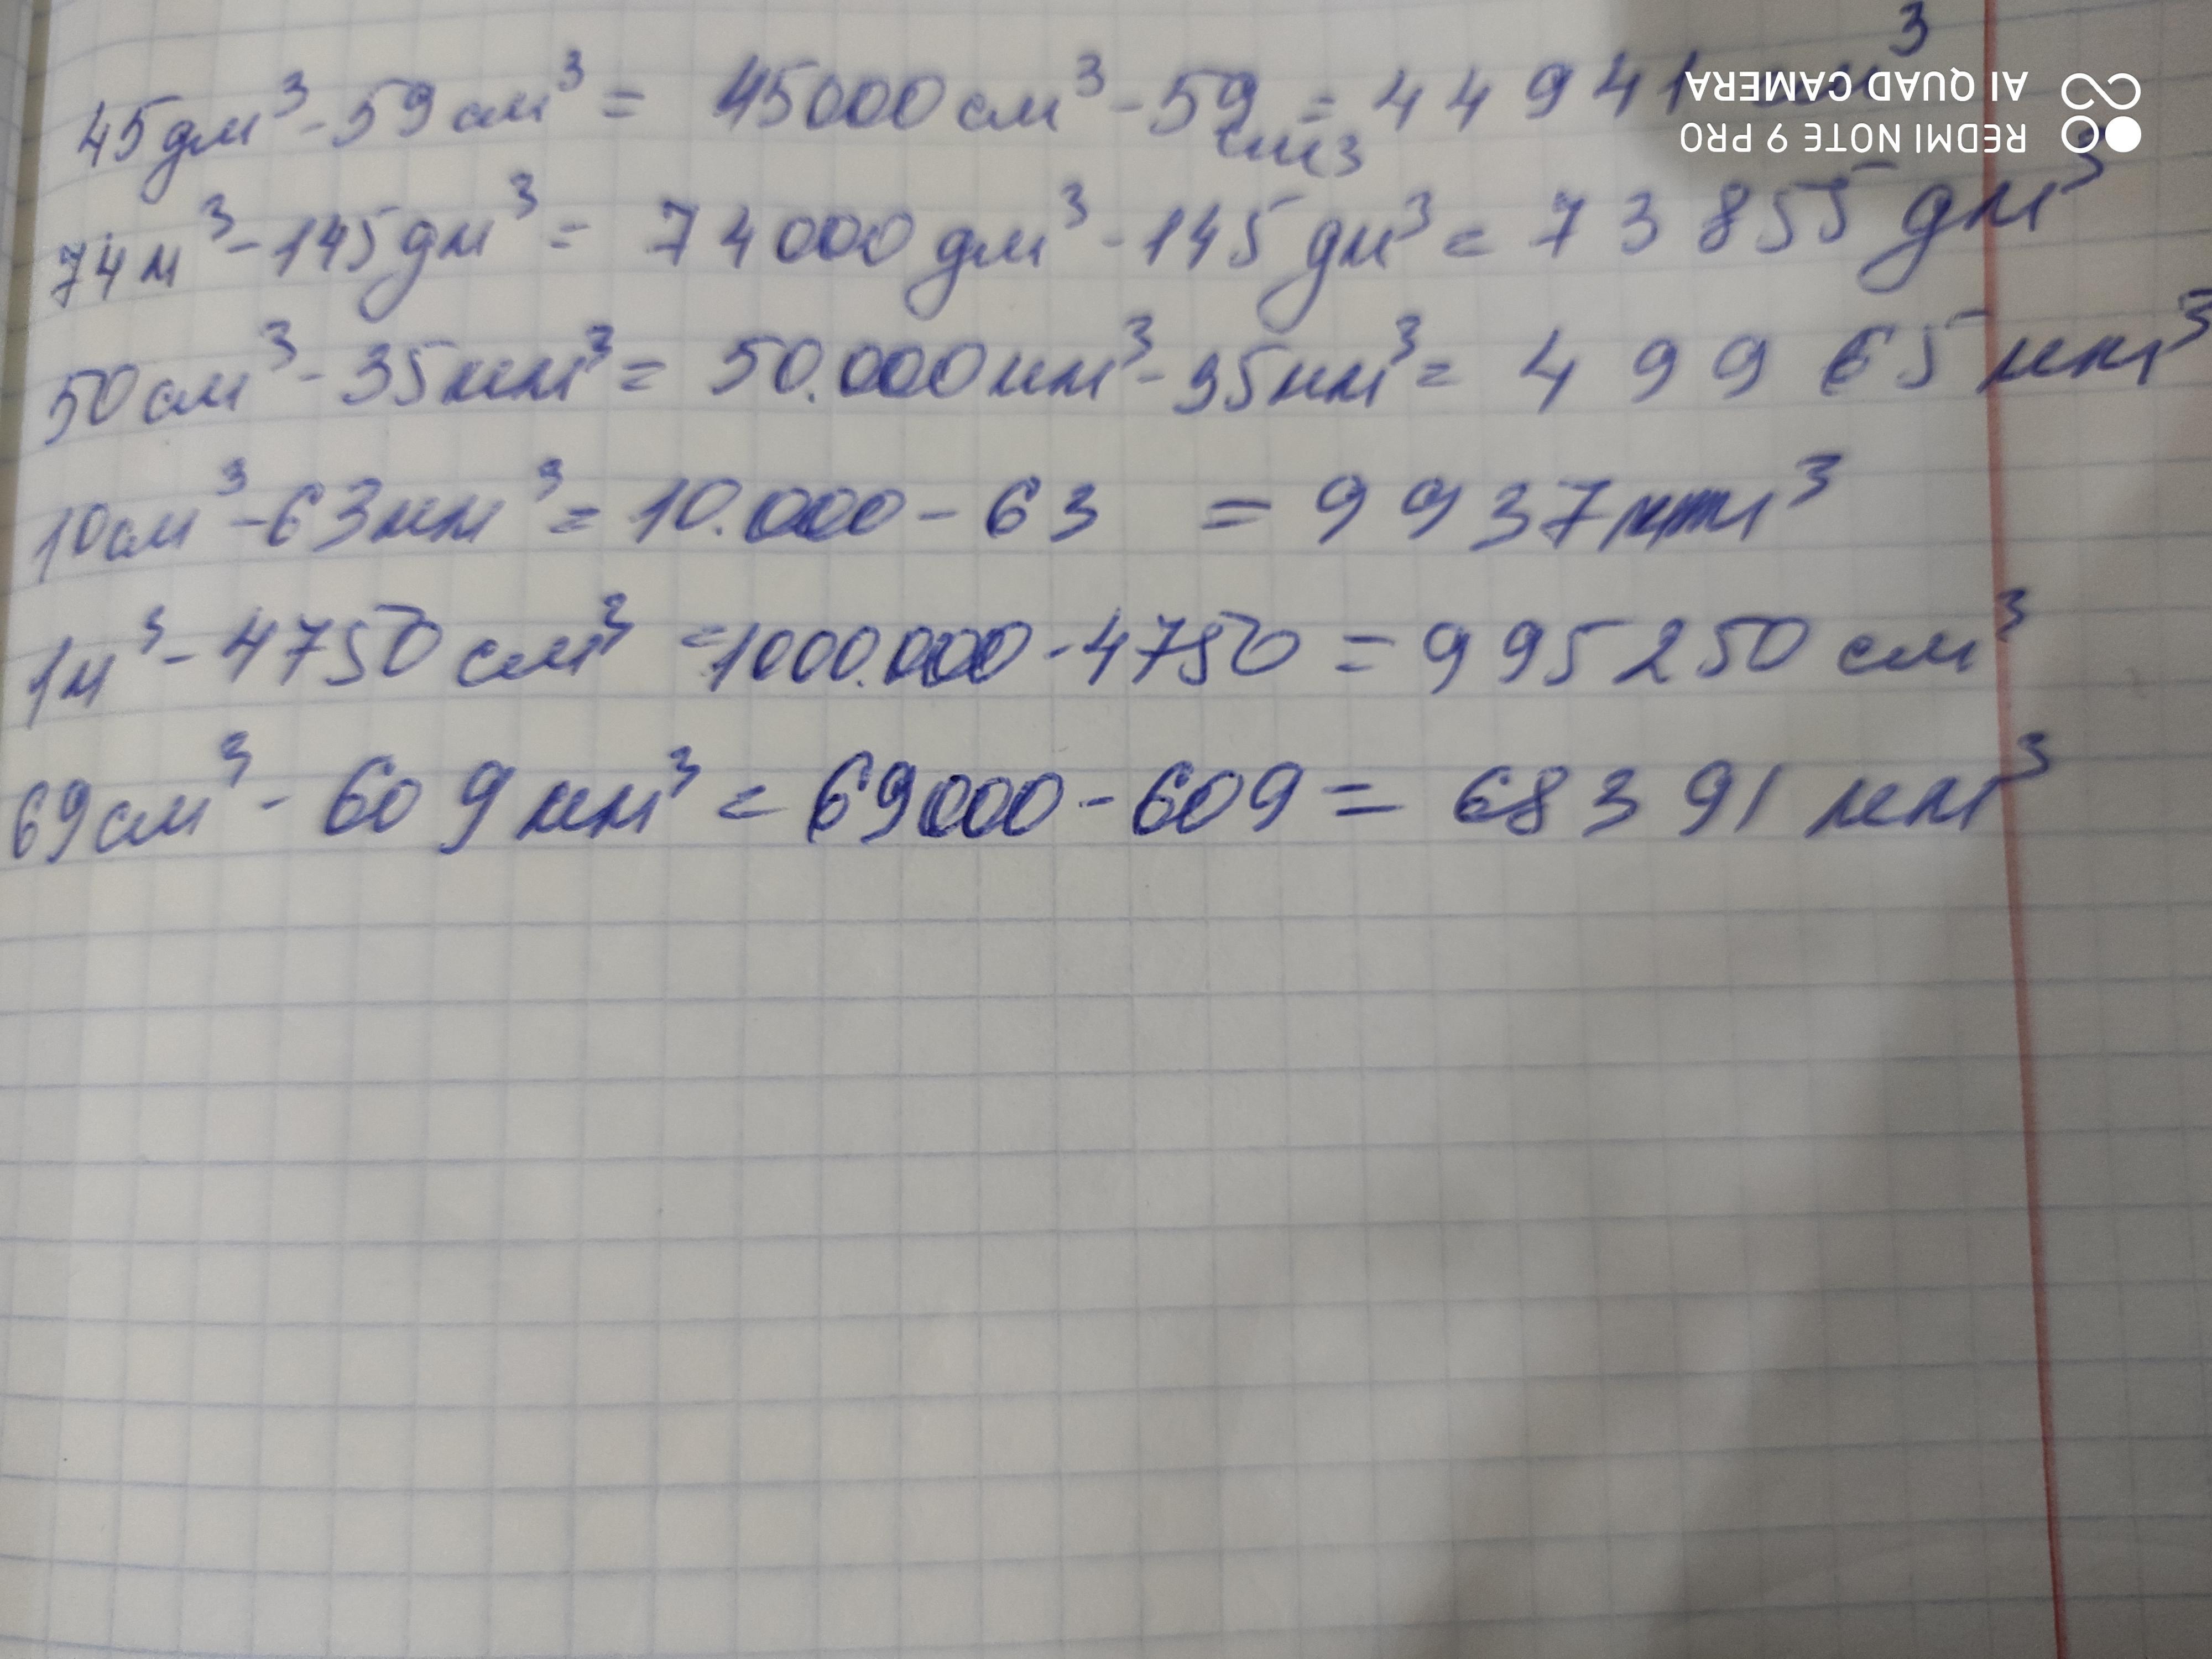 45дм³-59см³= 45000см³-59см3=44941см³
74м³-145дм³= 74000дм³-145дм³=73855дм³
50см³-35мм³=50.000мм³-35мм³=49965мм³
10см³-63мм³=10.000-63 =9937мм³
1м³-4750см³=1000.000-4750=995250см³
69см³-609мм³=69000-609=68391мм³
REDMI NOTE 9 PRO
AI QUAD CAMERA